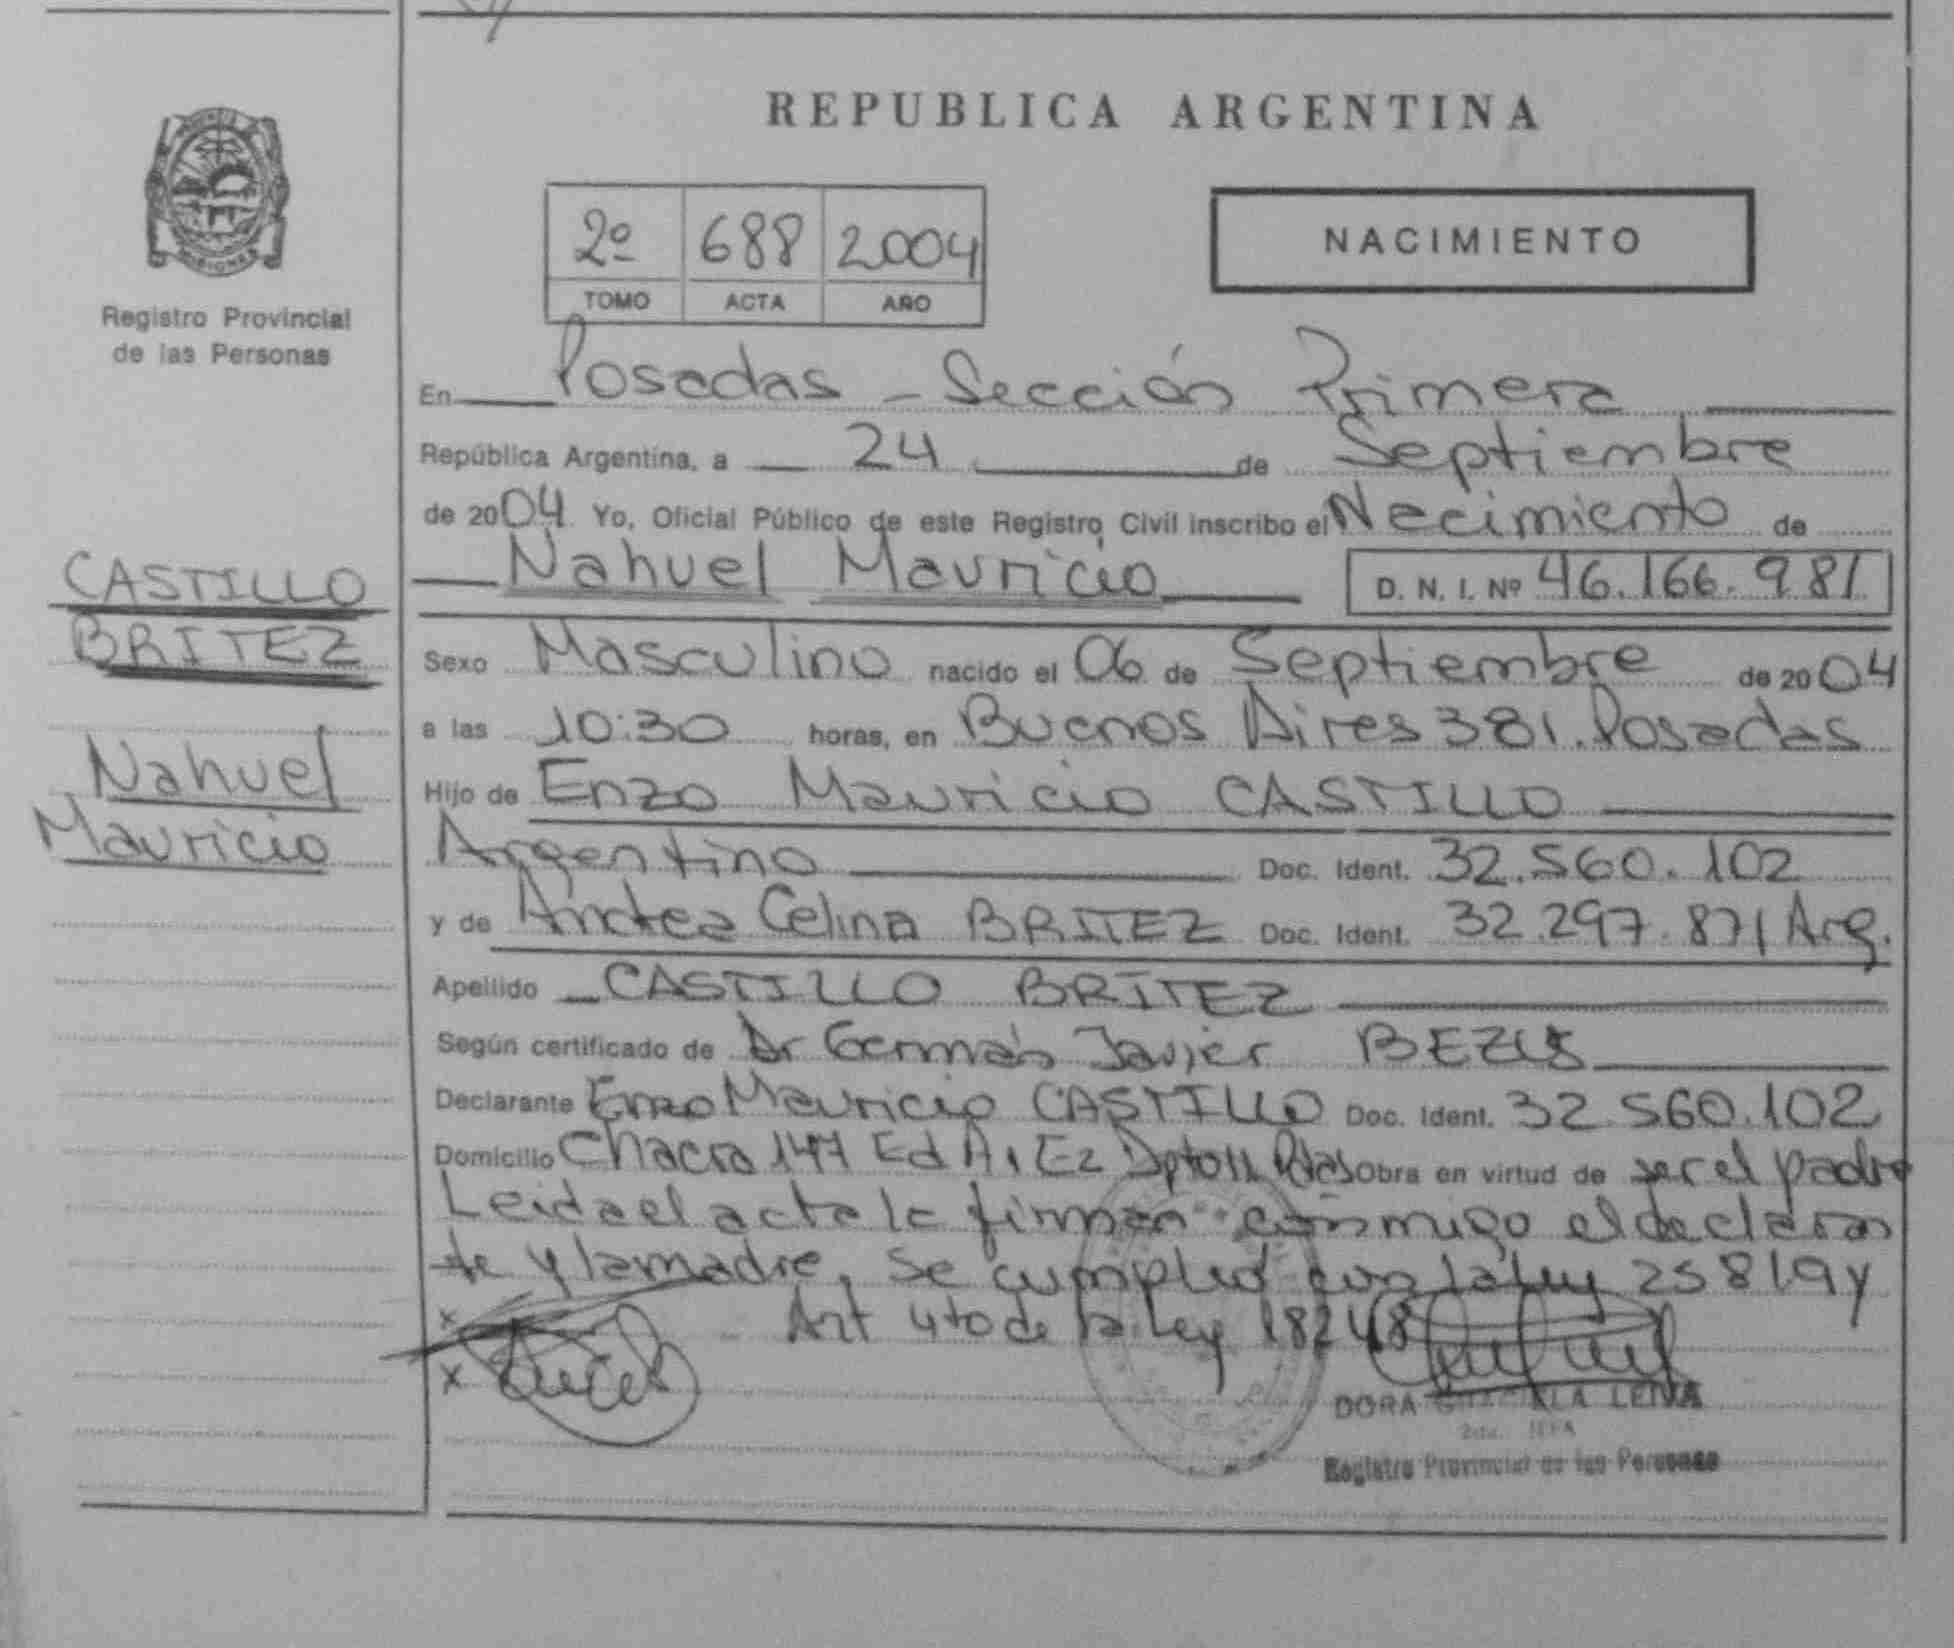 REPUBLICA ARGENTINA
2º 688 2004
TOMO ACTA AÑO
NACIMIENTO
MISIONES
Registro Provincial
de las Personas
CASTILLO
BRITEZ
Nahuel
Mauricio
En Posadas - Sección Primera
República Argentina, a 24 de Septiembre
de 2004 Yo, Oficial Público de este Registro Civil inscribo el Nacimiento de
Nahuel Mauricio D. N. I. Nº 46.166.981
Sexo Masculino nacido el 06 de Septiembre de 2004
a las 10:30 horas, en Buenos Aires 381. Posadas
Hijo de Enzo Mauricio CASTILLO
Argentino Doc. Ident. 32.560.102
y de Andrea Celina BRITEZ Doc. Ident. 32.297.871 Arg.
Apellido CASTILLO BRITEZ
Según certificado de Dr Germán Javier BEZUS
Declarante Enzo Mauricio CASTILLO Doc. Ident. 32.560.102
Domicilio Chacra 147 Ed A1 E2 Dpto Pdas Obra en virtud de ser el padre
Leida el acta la firman conmigo el declaran
te y la madre, se cumplió con la Ley 25819 y
Art 4to de la Ley 18248
DORA GRACIELA LEIVA
2da. JEFA
Registro Provincial de las Personas